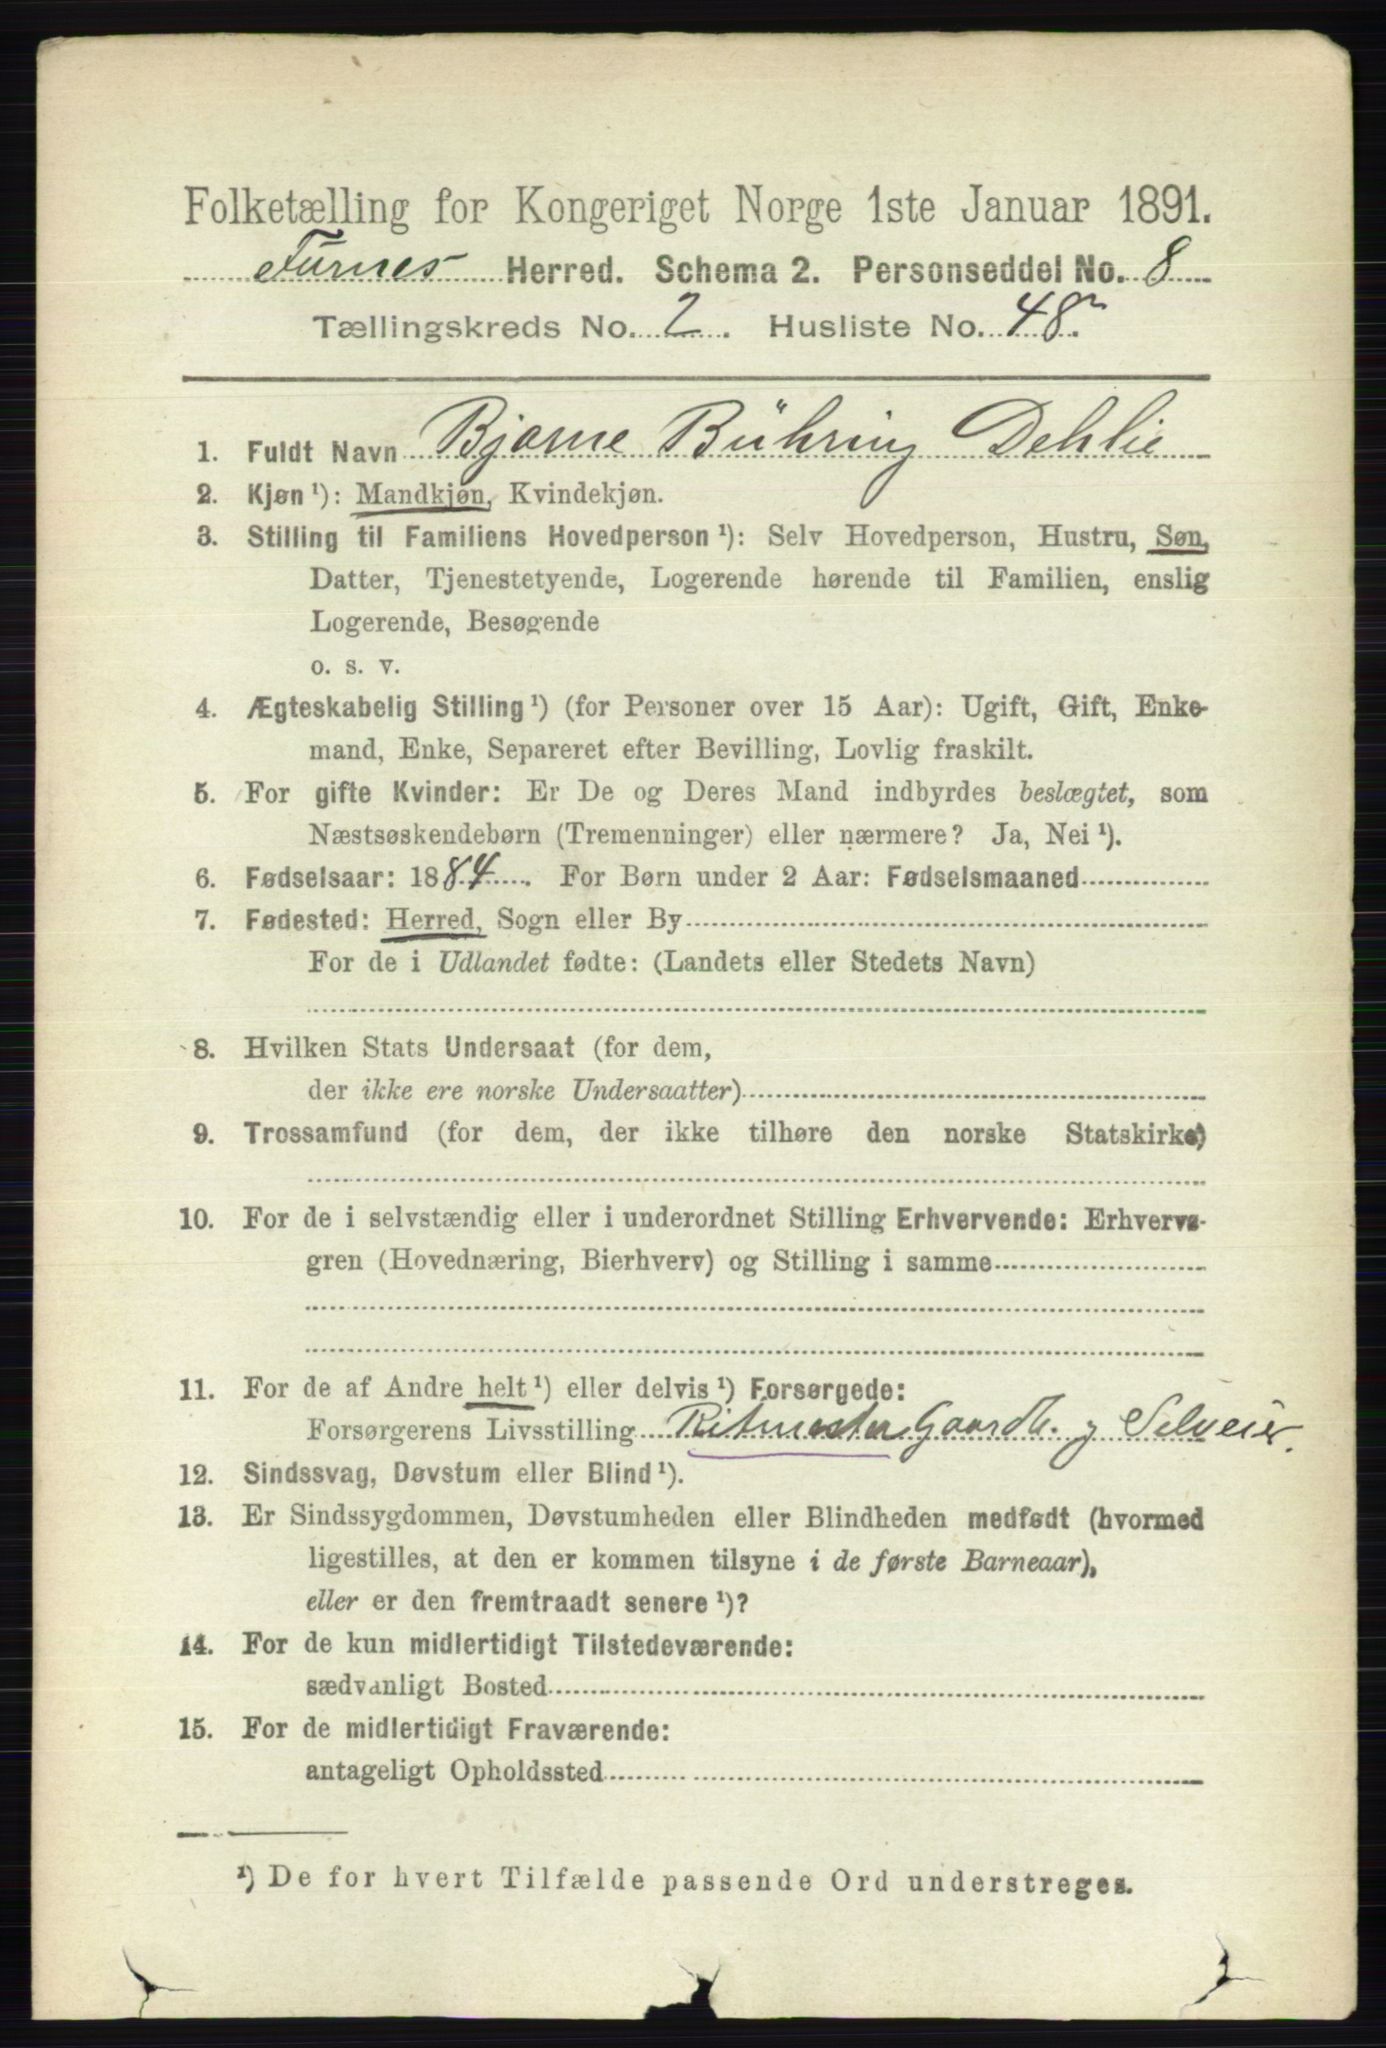 Folketælling for Kongeriget Norge 1ste Januar 1891.
Furnes Herred. Schema 2. Personseddel No. 8
Tællingskreds No. 2. Husliste No. 48
1. Fuldt Navn Bjarne Bühring Dehlie
2. Kjøn ¹): Mandkjøn, Kvindekjøn.
3. Stilling til Familiens Hovedperson ¹): Selv Hovedperson, Hustru, Søn,
Datter, Tjenestetyende, Logerende hørende til Familien, enslig
Logerende, Besøgende
o. s. v.
4. Ægteskabelig Stilling ¹) (for Personer over 15 Aar): Ugift, Gift, Enke-
mand, Enke, Separeret efter Bevilling, Lovlig fraskilt.
5. For gifte Kvinder: Er De og Deres Mand indbyrdes beslægtet, som
Næstsøskendebørn (Tremenninger) eller nærmere? Ja, Nei ¹).
6. Fødselsaar: 1884. For Børn under 2 Aar: Fødselsmaaned
7. Fødested: Herred, Sogn eller By
For de i Udlandet fødte: (Landets eller Stedets Navn)
8. Hvilken Stats Undersaat (for dem,
der ikke ere norske Undersaatter)
9. Trossamfund (for dem, der ikke tilhøre den norske Statskirke)
10. For de i selvstændig eller i underordnet Stilling Erhvervende: Erhvervs-
gren (Hovednæring, Bierhverv) og Stilling i samme
11. For de af Andre helt ¹) eller delvis ¹) Forsørgede:
Forsørgerens Livsstilling Ritmester Gaardb. og Selveier.
12. Sindssvag, Døvstum eller Blind ¹).
13. Er Sindssygdommen, Døvstumheden eller Blindheden medfødt (hvormed
ligestilles, at den er kommen tilsyne i de første Barneaar),
eller er den fremtraadt senere ¹)?
14. For de kun midlertidigt Tilstedeværende:
sædvanligt Bosted
15. For de midlertidigt Fraværende:
antageligt Opholdssted
¹) De for hvert Tilfælde passende Ord understreges.